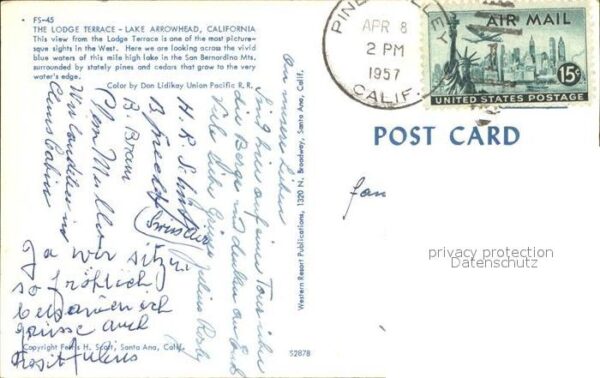 FS-45
THE LODGE TERRACE - LAKE ARROWHEAD, CALIFORNIA
This view from the Lodge Terrace is one of the most pictur-
esque sights in the West. Here we are looking across the vivid
blue waters of this mile high lake in the San Bernardino Mts.
surrounded by stately pines and cedars that grow to the very
water's edge.
Color by Don Lidikay Union Pacific R. R.
PINE VALLEY
APR 8
2 PM
1957
CALIF.
AIR MAIL
15¢
UNITED STATES POSTAGE
POST CARD
privacy protection
Datenschutz
An unsere Lieben
Sind hier auf einer Tour
die Berge und
Viele liebe Grüsse
B. Braun
Müller
(Swissair)
Wir landeten in
Cabin
Ja wir sitzen
so fröhlich
beisammen ich
grüsse auch
Western Resort Publications, 1320 N. Broadway, Santa Ana, Calif.
Copyright Ferris H. Scott, Santa Ana, Calif.
S2878